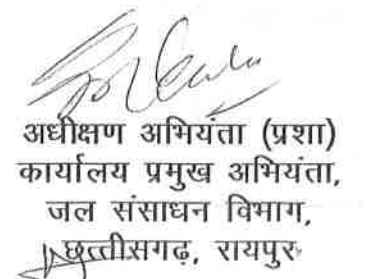 अधीक्षण अभियंता (प्रशा)
कार्यालय प्रमुख अभियंता,
जल संसाधन विभाग,
छत्तीसगढ़, रायपुर